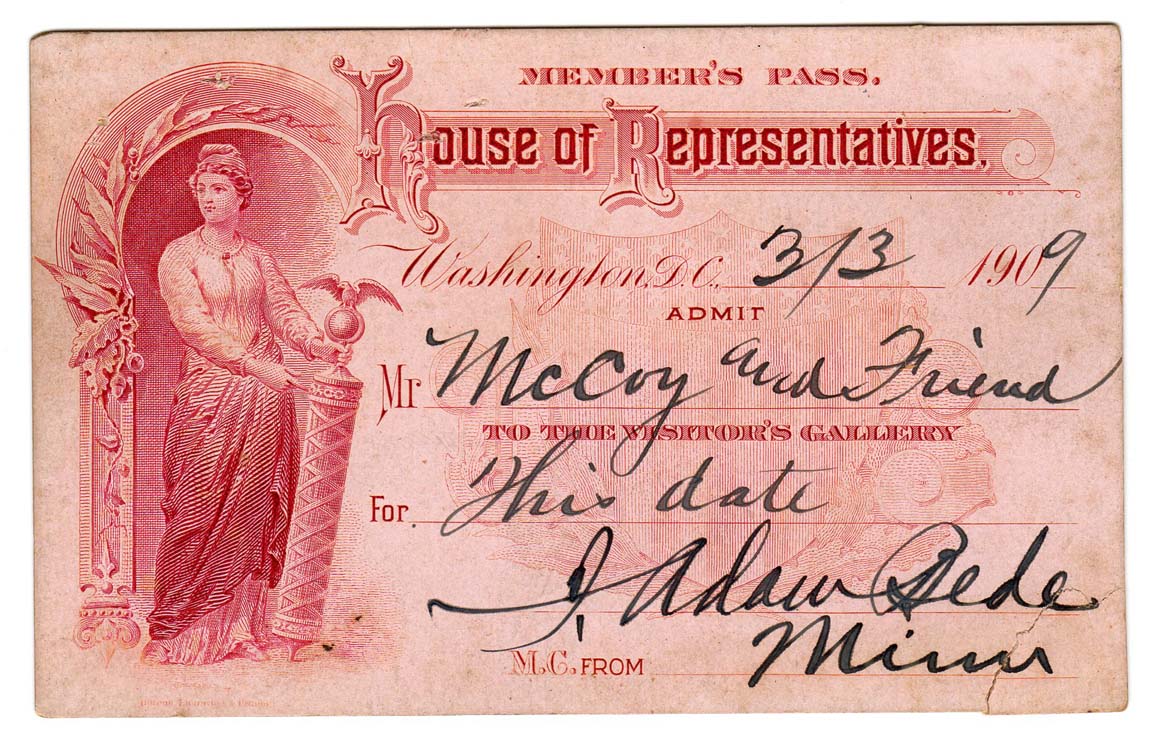 MEMBER'S PASS.
House of Representatives.
Washington, D.C. 3/3 1909
ADMIT
Mr McCoy and Friend
TO THE VISITOR'S GALLERY
For This date
J. Adam Bede
M.C. FROM Minn